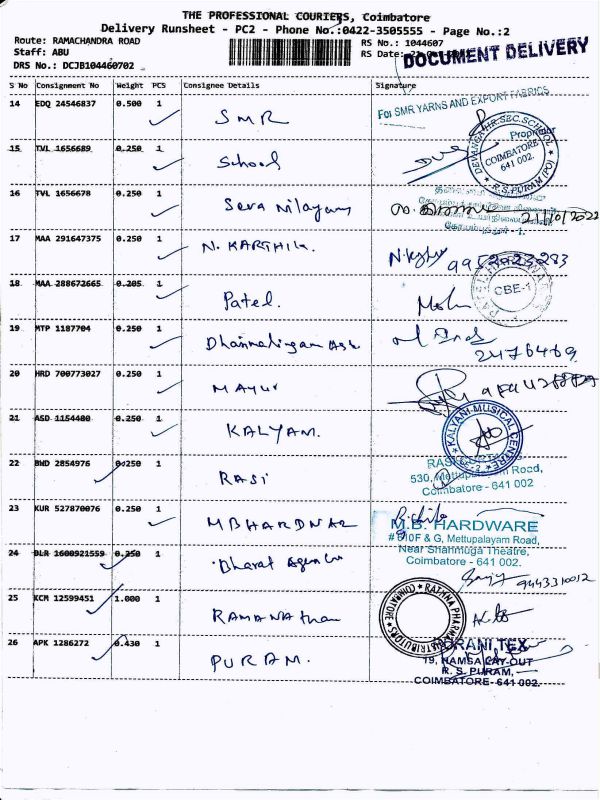 THE PROFESSIONAL COURIERS, Coimbatore
Delivery Runsheet - PC2 - Phone No.:0422-3505555 - Page No.:2
Route: RAMACHANDRA ROAD
RS No.: 1044607
Staff: ABU
RS Date:
DOCUMENT DELIVERY
DRS No.: DCJB104460702
S No Consignment No Weight PCS Consignee Details Signature
14 EDQ 24546837 0.500 1 SMR
For SMR YARNS AND EXPORT FABRICS
Proprietor
15 TVL 1656689 0.250 1 School
DEVANGA HR.SEC.SCHOOL
COIMBATORE
641 002.
R.S.PURAM (PO)
16 TVL 1656678 0.250 1 Seva Nilayam
21/10/2022
17 MAA 291647375 0.250 1 N. KARTHIK.
9952023283
18 MAA 288672665 0.205 1 Patel.
CBE-1
19 MTP 1187704 0.250 1
2476469.
20 HRD 700773027 0.250 1 Mayur
21 ASD 1154480 0.250 1 KALYAM.
KALYANI MUSICAL CENTRE
22 BWD 2854976 0.250 1 RASI
530, Mettupalayam Road,
Coimbatore - 641 002
23 KUR 527870076 0.250 1 MBHARDWAR
M.B. HARDWARE
# 910F & G, Mettupalayam Road,
Near Shanmuga Theatre,
Coimbatore - 641 002.
24 BLR 1600921559 0.250 1 Bharat
9443310012
25 KCM 12599451 1.000 1 RAMANAthan
RATHNA PHARMA DISTRIBUTORS
COIMBATORE
26 APK 1286272 0.430 1 PURAM.
TEX
19, HAMSA LAY-OUT
R. S. PURAM,
COIMBATORE- 641 002.